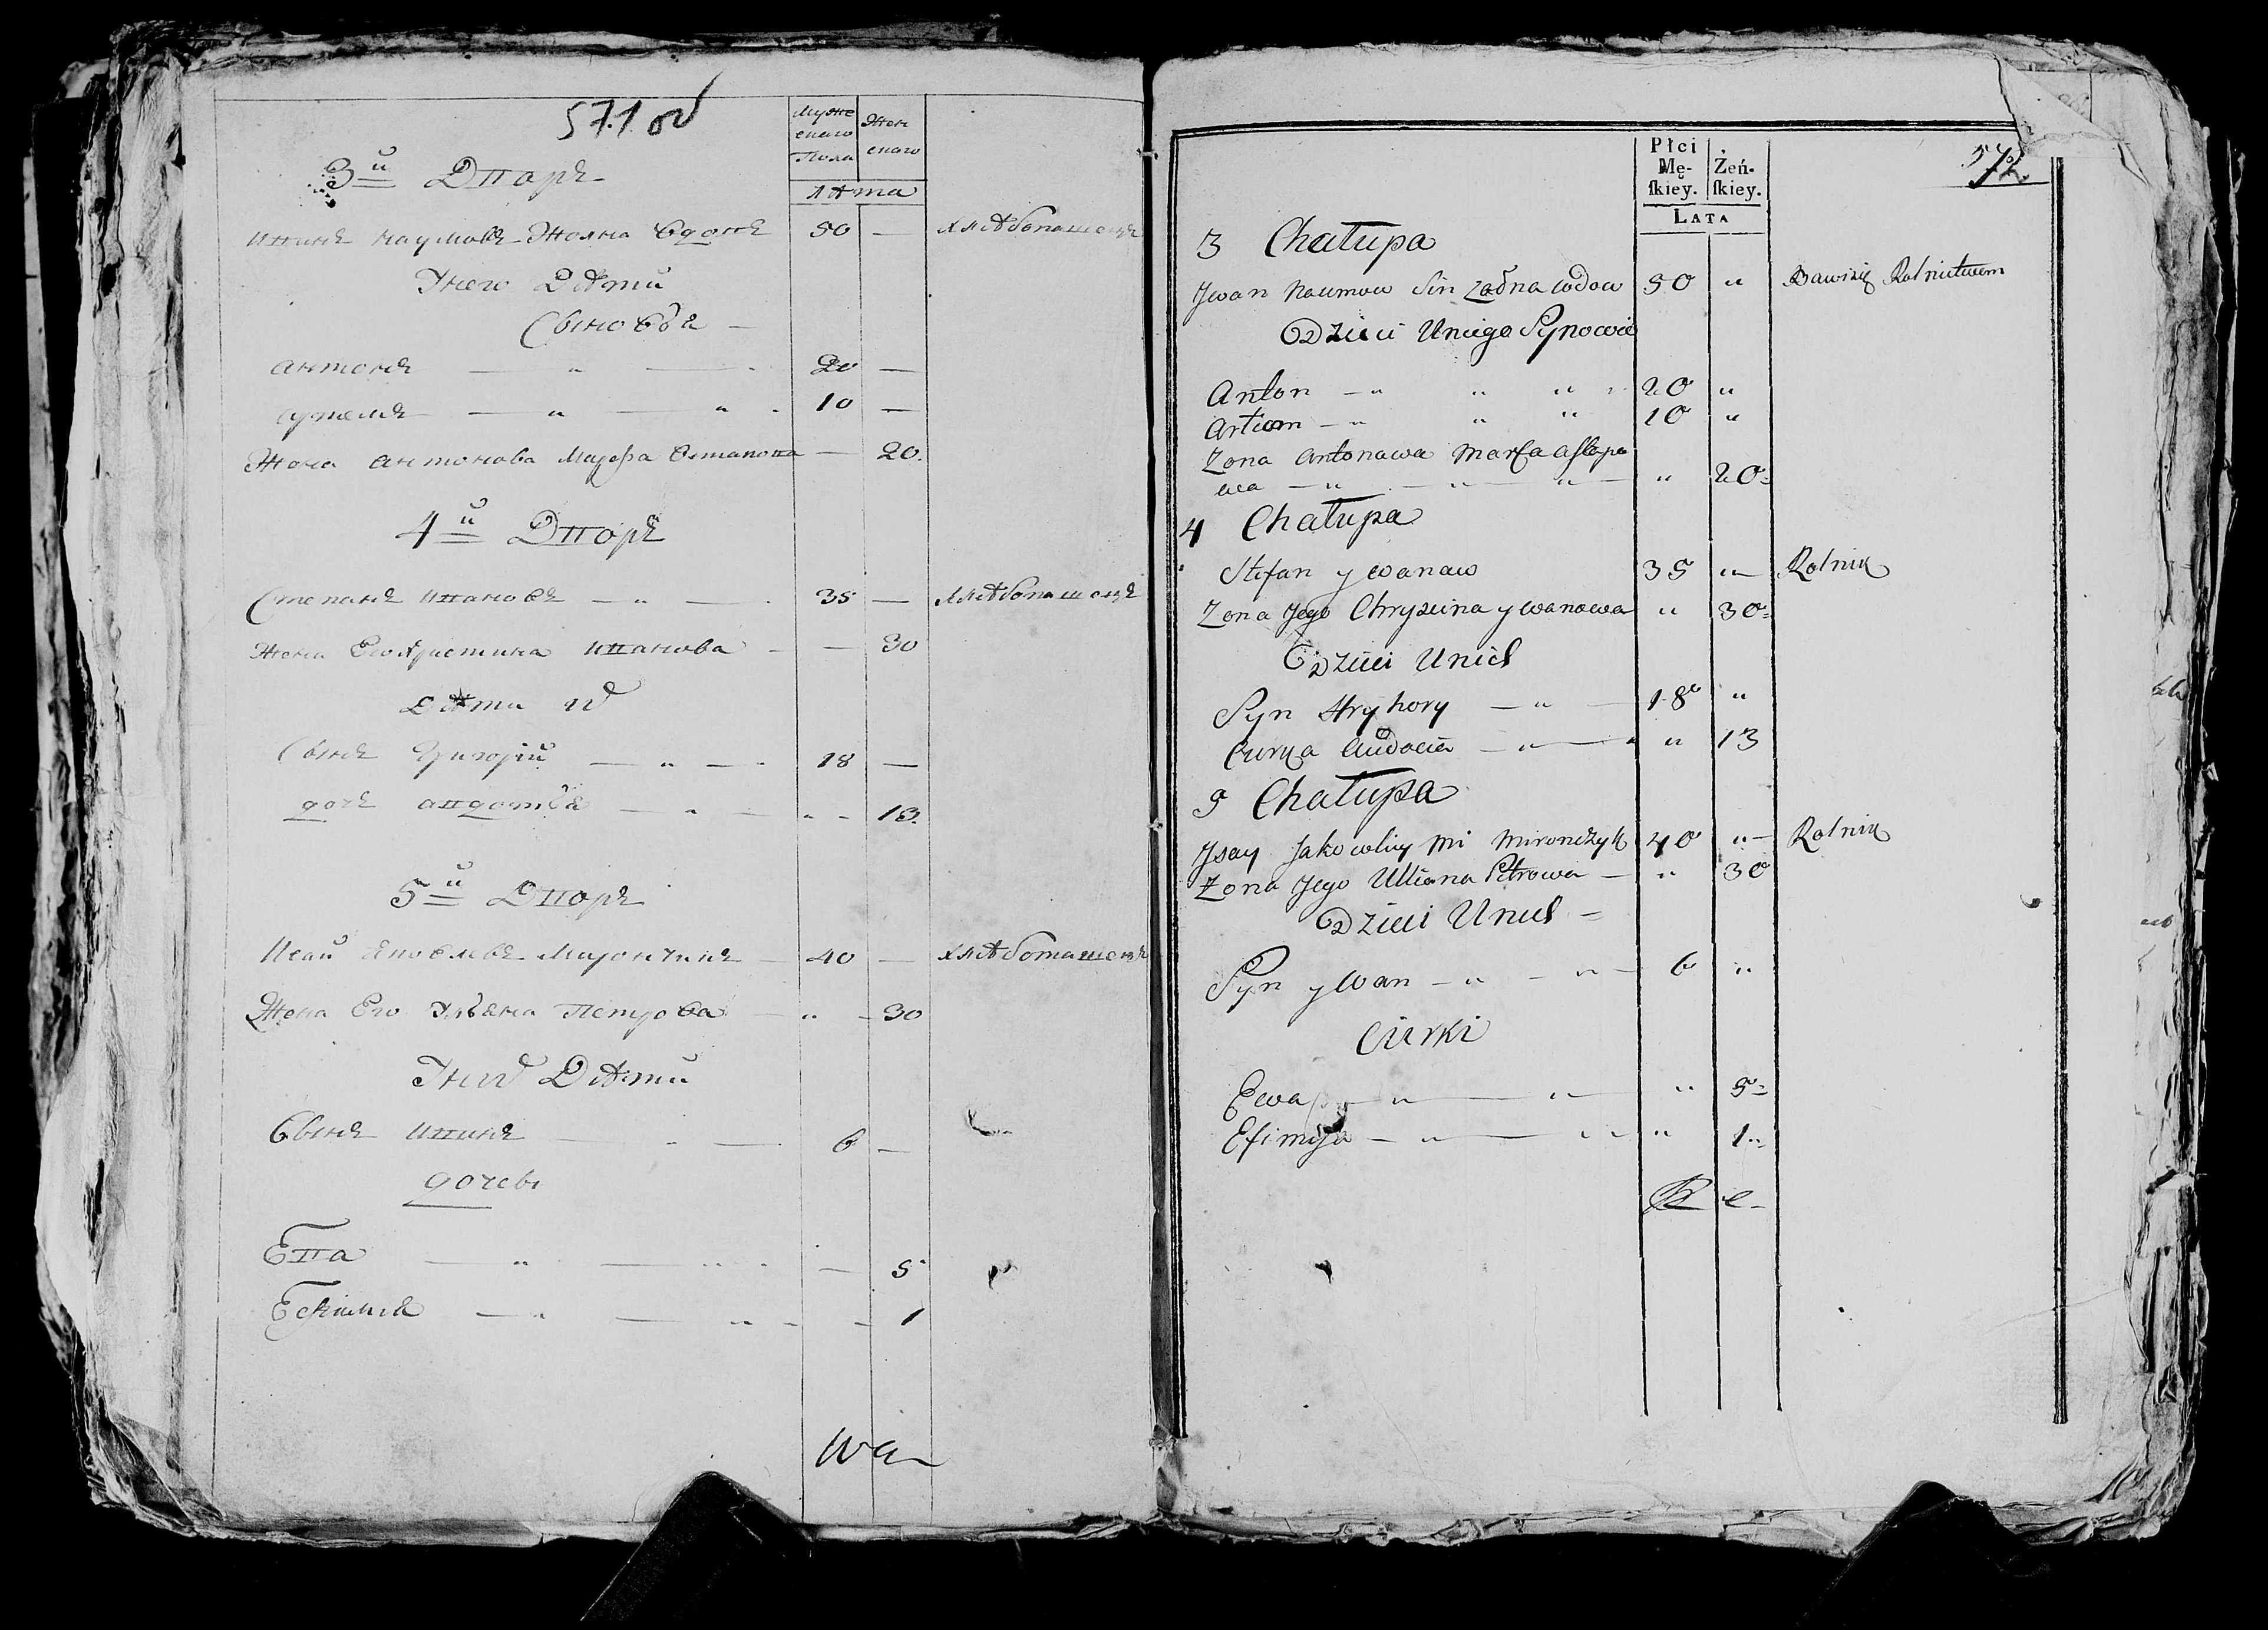 571 об
Муже
скаго
Пола
Жен
скаго
лѣта
3й Дворъ
Иванъ Наумовъ
50 — хлѣбопашецъ
У него Дѣти
Сыновья —
Антонъ — 20 —
Артемъ — 10 —
Жена Антонова Марфа Остапова — 20
4й Дворъ
Степанъ Ивановъ — 35 — хлѣбопашецъ
Жена Его Христина Иванова — — 30
Дѣти их
Сынъ Григорій — 18 —
дочь Авдотья — 13
5й Дворъ
Исай Яковлевъ Мирончикъ — 40 — хлѣбопашецъ
Жена Его Ульяна Петрова — 30
У них Дѣти
Сынъ Иванъ — 6 —
дочери
Ева — 5
Ефимія — 1
572
Płci
Mę-
ſkiey.
Żeń-
ſkiey.
LATA
3 Chałupa
Jwan Naumow 50 " Bawisię Rolnictwem
Dzieci Uniego Synowie
Anton — " " " 20 "
Artiom — " " " 10 "
Zona Antonawa Marfa Astapo
wa — " — " — " — " 20
4 Chałupa
Stefan ywanaw 35 " Rolnik
Zona Jego Chryscina ywanowa " 30
Dzieci Unich
Syn Hryhory — " — 18 "
Curka Audocia — " — " 13
5 Chałupa
Jsay Jakowliw Mirończyk 40 " — Rolnik
Zona Jego Uliana Petrowa — " 30
Dzieci Unich —
Syn ywan — " — " — 6 "
Curki
Ewa — " — " — " 5
Efimija — " — " " 1